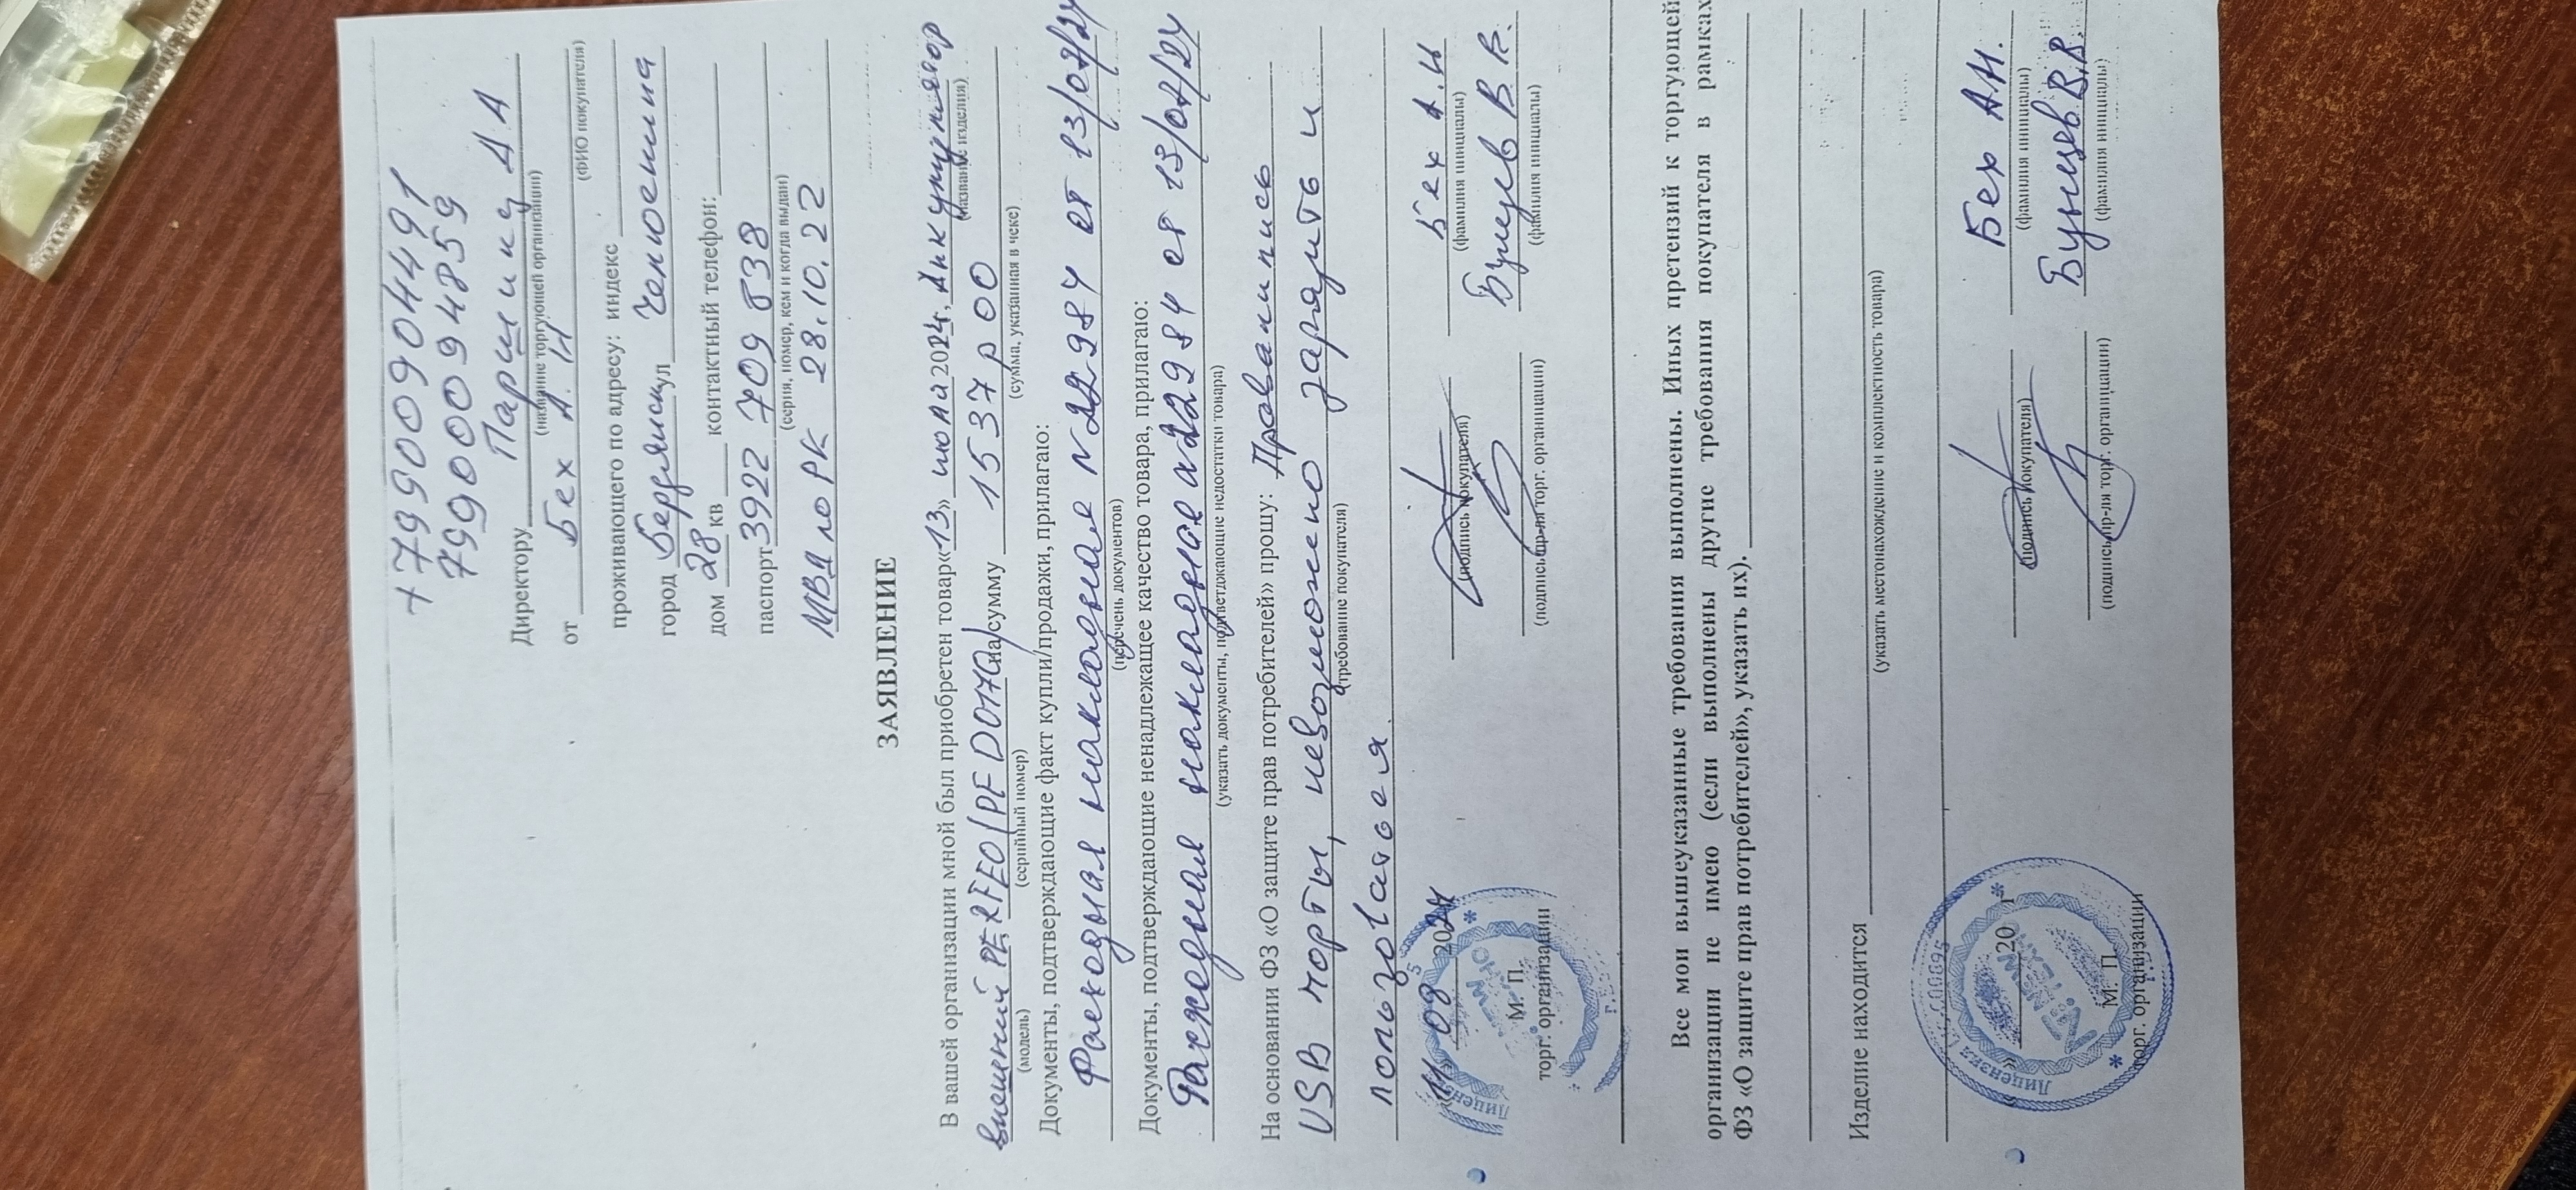 +79900904491
79900094859
Директору Паршину А А
(название торгующей организации)
от Бех А. Н
(ФИО покупателя)
проживающего по адресу: индекс
город Бердянск ул
дом 28 кв контактный телефон:
паспорт 3922 709 838
(серия, номер, кем и когда выдан)
МВД по РК 28.10.22
ЗАЯВЛЕНИЕ
В вашей организации мной был приобретен товар «13» июля 2024, Аккумулятор
(название изделия)
внешний PERFEO (PF D0170) на сумму 1537 р 00
(модель) (серийный номер) (сумма, указанная в чеке)
Документы, подтверждающие факт купли/продажи, прилагаю:
Расходная накладная N 22984 от 13/07/24
(перечень документов)
Документы, подтверждающие ненадлежащее качество товара, прилагаю:
Расходная накладная 22984 от 13/07/24
(указать документы, подтверждающие недостатки товара)
На основании ФЗ «О защите прав потребителей» прошу: Провалились
USB порты, невозможно зарядить и
(требование покупателя)
пользоваться
Бех А.Н
(подпись покупателя) (фамилия инициалы)
«11» 09 2024
Бунцев В В.
М. П. (подпись пр-ля торг. организации) (фамилия инициалы)
торг. организации
Все мои вышеуказанные требования выполнены. Иных претензий к торгующей
организации не имею (если выполнены другие требования покупателя в рамках
ФЗ «О защите прав потребителей», указать их).
Изделие находится
(указать местонахождение и комплектность товара)
Бех А.Н.
(подпись покупателя) (фамилия инициалы)
« » 20 г
Бунцев В.В
М. П. (подпись пр-ля торг. организации) (фамилия инициалы)
торг. организации